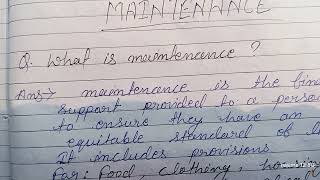 MAINTENANCE
Q. What is maintenance ?
Ans→ maintenance is the
support provided to a
to ensure they have an
equitable standard of
It includes provisions
For: Food, clothing,